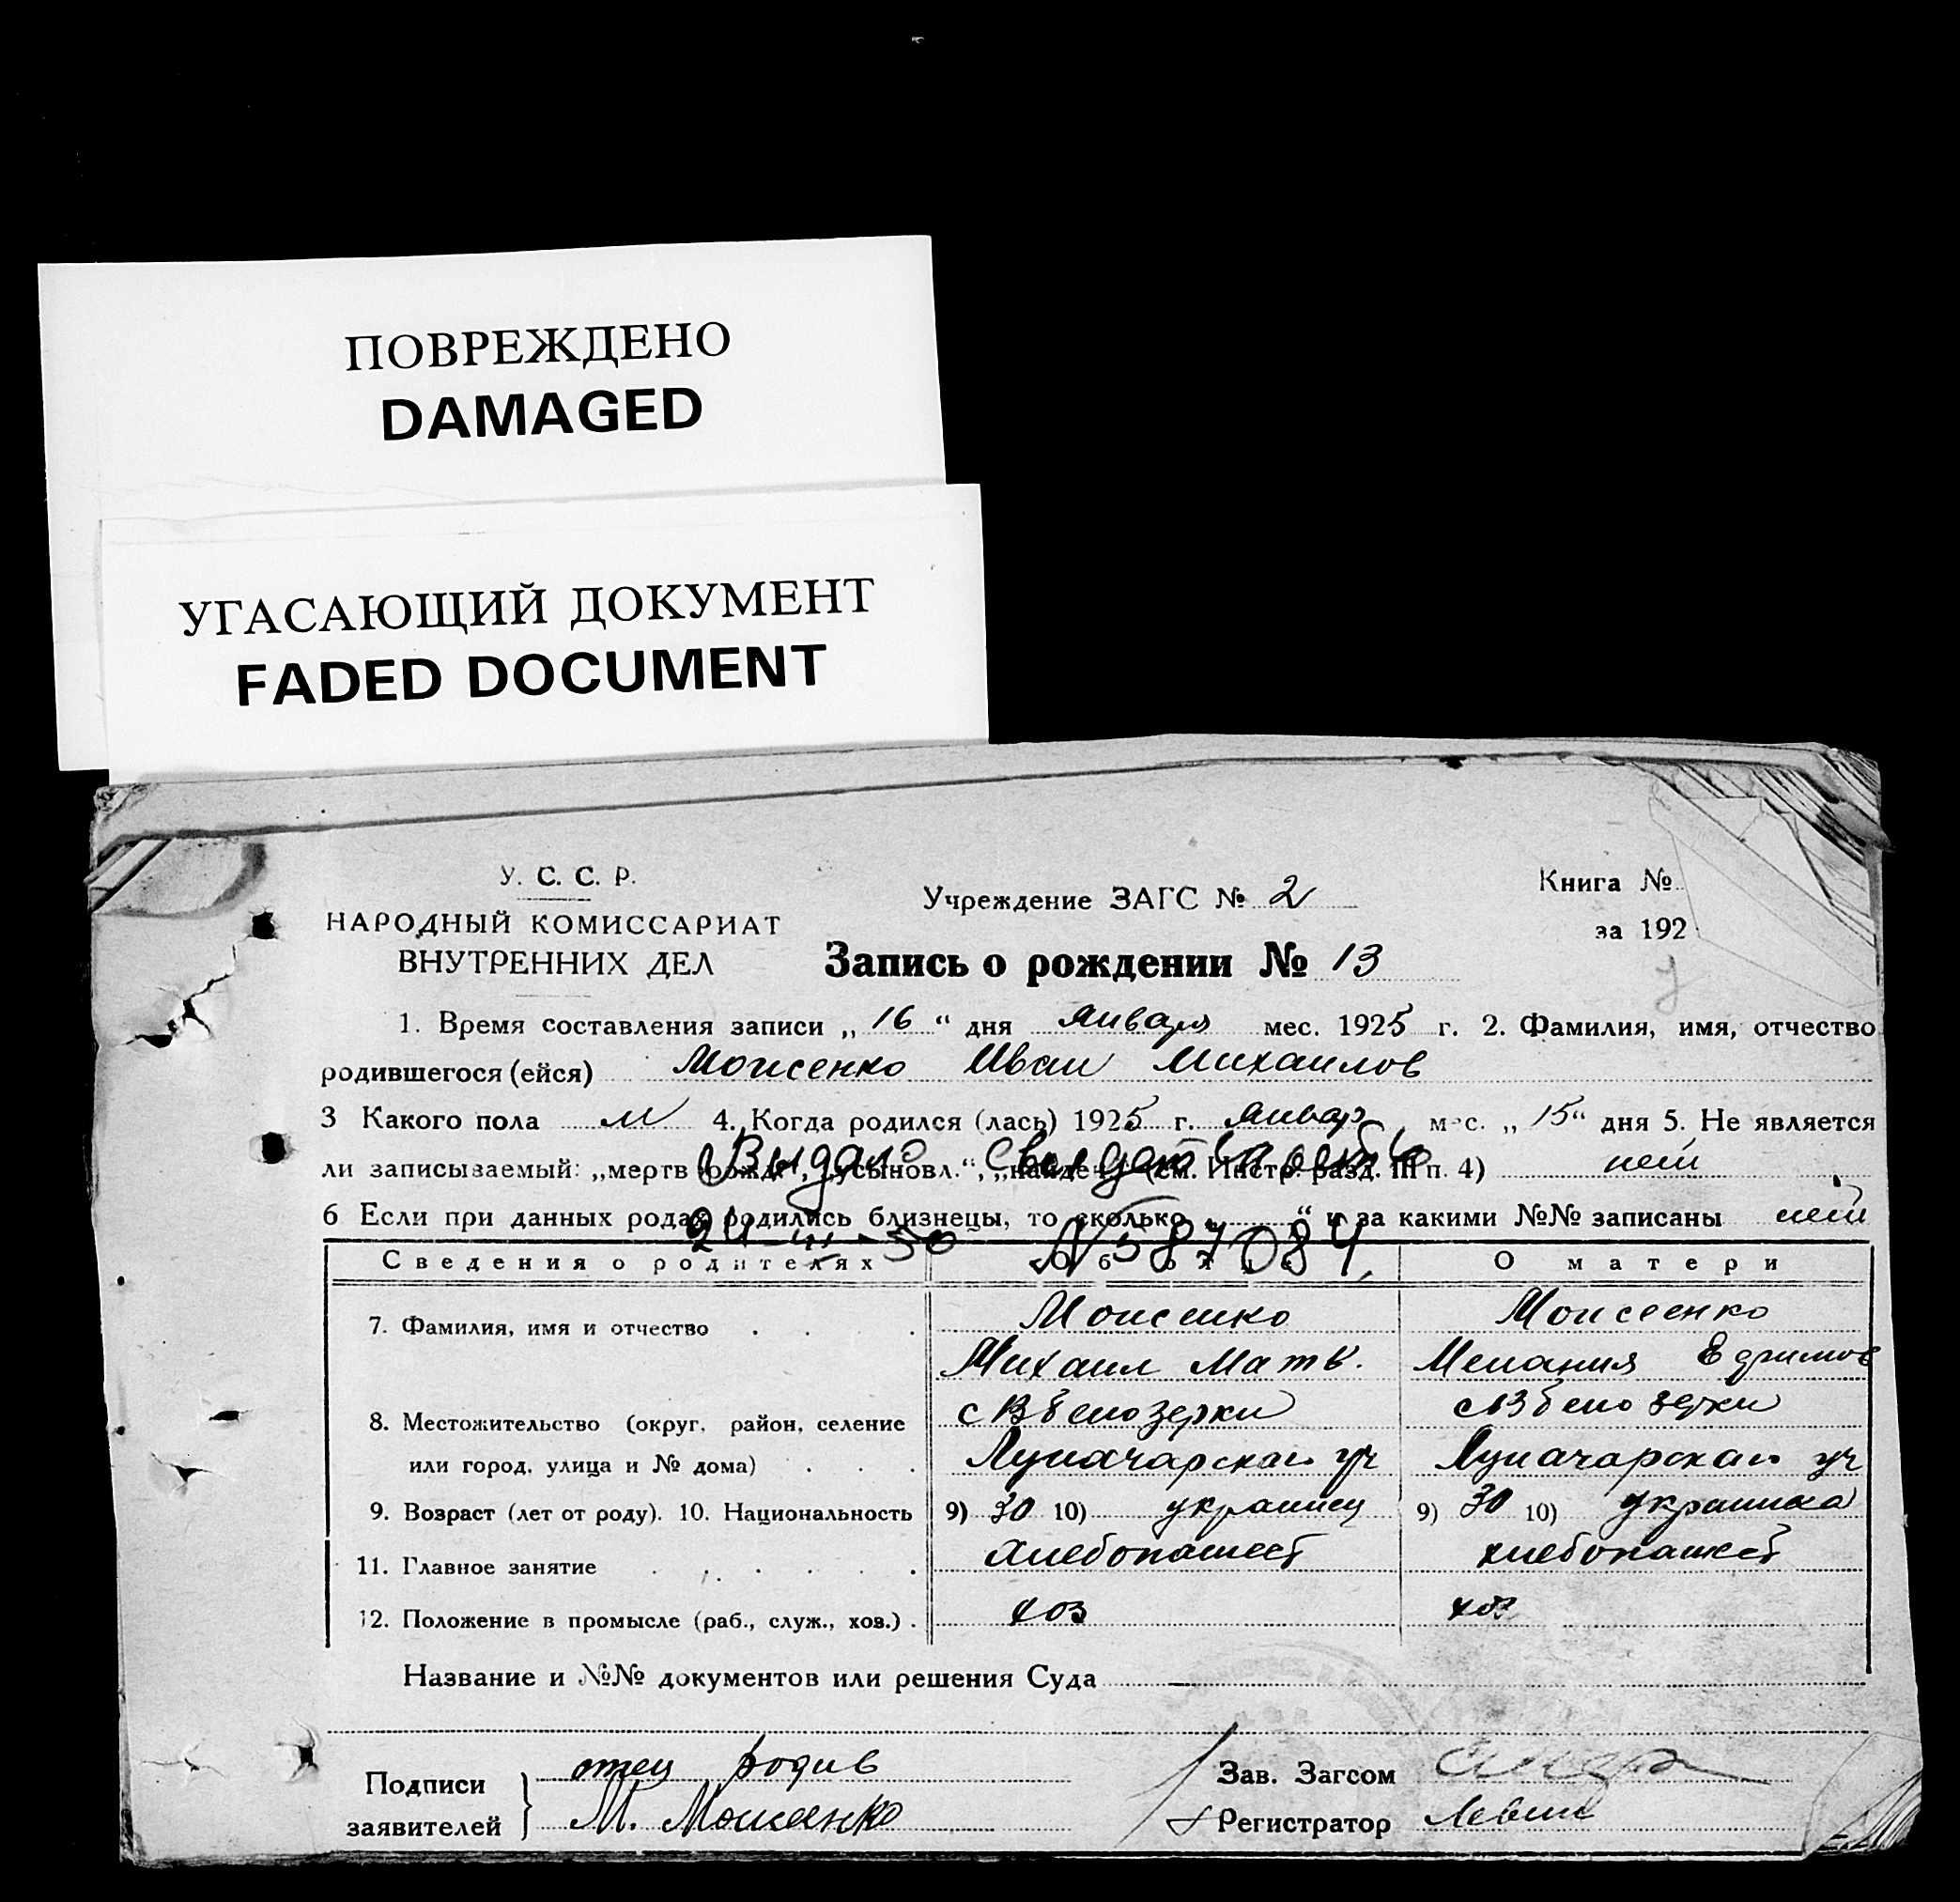 ПОВРЕЖДЕНО
DAMAGED
УГАСАЮЩИЙ ДОКУМЕНТ
FADED DOCUMENT
У. С. С. Р.
НАРОДНЫЙ КОМИССАРИАТ
ВНУТРЕННИХ ДЕЛ
Учреждение ЗАГС № 2
Запись о рождении № 13
Книга №
за 192
1. Время составления записи „ 16 “ дня января мес. 1925 г. 2. Фамилия, имя, отчество
родившегося (ейся) Моисенко Иван Михаилов
3 Какого пола м 4. Когда родился (лась) 1925 г. январ мес. „ 15 “ дня 5. Не является
Выдано свидетельство
ли записываемый: „мертв рожд“, „усыновл.“, „найден“ (см. Инстр. разд. III п. 4) нет
6 Если при данных родах родились близнецы, то сколько „ “ и за какими №№ записаны нет
24-III-50 № 587084
Сведения о родителях Об отце О матери
7. Фамилия, имя и отчество Моисенко Моисеенко
Михаил Матв. Мелания Ефимов
8. Местожительство (округ, район, селение с В белозерки с В белозерки
или город, улица и № дома) Луначарская ул Луначарская ул
9. Возраст (лет от роду). 10. Национальность 9) 30 10) украинец 9) 30 10) украинка
11. Главное занятие хлебопашест хлебопашест
12. Положение в промысле (раб., служ., хоз.) хоз хоз
Название и №№ документов или решения Суда
Подписи заявителей } отец родив
М. Моисенко
Зав. Загсом
Регистратор Левин